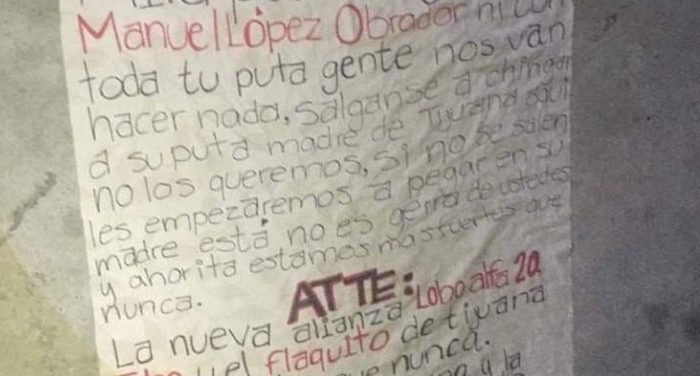 Manuel López Obrador ni con
toda tu puta gente nos van
hacer nada, salganse a chingar
a su puta madre de Tijuana aqui
no los queremos, si no se salen
les empezaremos a pegar en su
madre está no es gerra de ustedes
y ahorita estamos mas fuertes que
nunca.
ATTE: Lobo alfa 20
La nueva alianza
y el flaquito de tijuana
que nunca.
y la